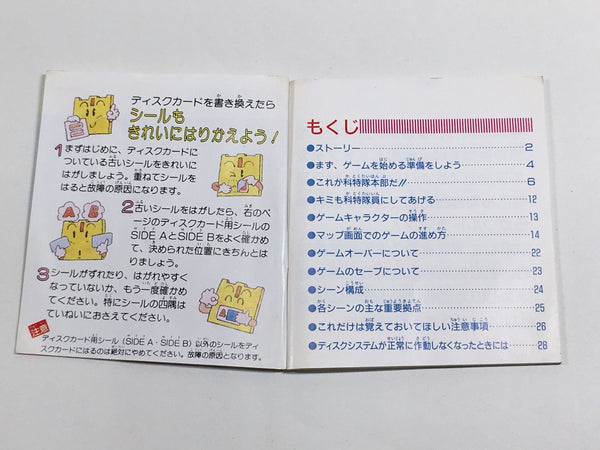 ディスクカードを書き換えたら
シールも
きれいにはりかえよう!
1まずはじめに、ディスクカードに
ついている古いシールをきれいに
はがしましょう。重ねてシールを
はると故障の原因になります。
A B
2古いシールをはがしたら、右のペ
ージのディスクカード用シールの
SIDE AとSIDE Bをよく確かめ
て、決められた位置にきちんとは
りましょう。
3シールがずれたり、はがれやすく
なっていないか、もう一度確かめ
てください。特にシールの四隅は
ていねいにおさえてください。
注意
ディスクカード用シール(SIDE A・SIDE B)以外のシールをディ
スクカードにはるのは絶対にやめてください。故障の原因となります。
もくじ
●ストーリー 2
●まず、ゲームを始める準備をしよう 4
●これが科特隊本部だ!! 6
●キミも科特隊員にしてあげる 12
●ゲームキャラクターの操作 13
●マップ画面でのゲームの進め方 14
●ゲームオーバーについて 22
●ゲームのセーブについて 23
●シーン構成 24
●各シーンの主な重要拠点 25
●これだけは覚えておいてほしい注意事項 26
●ディスクシステムが正常に作動しなくなったときには 28